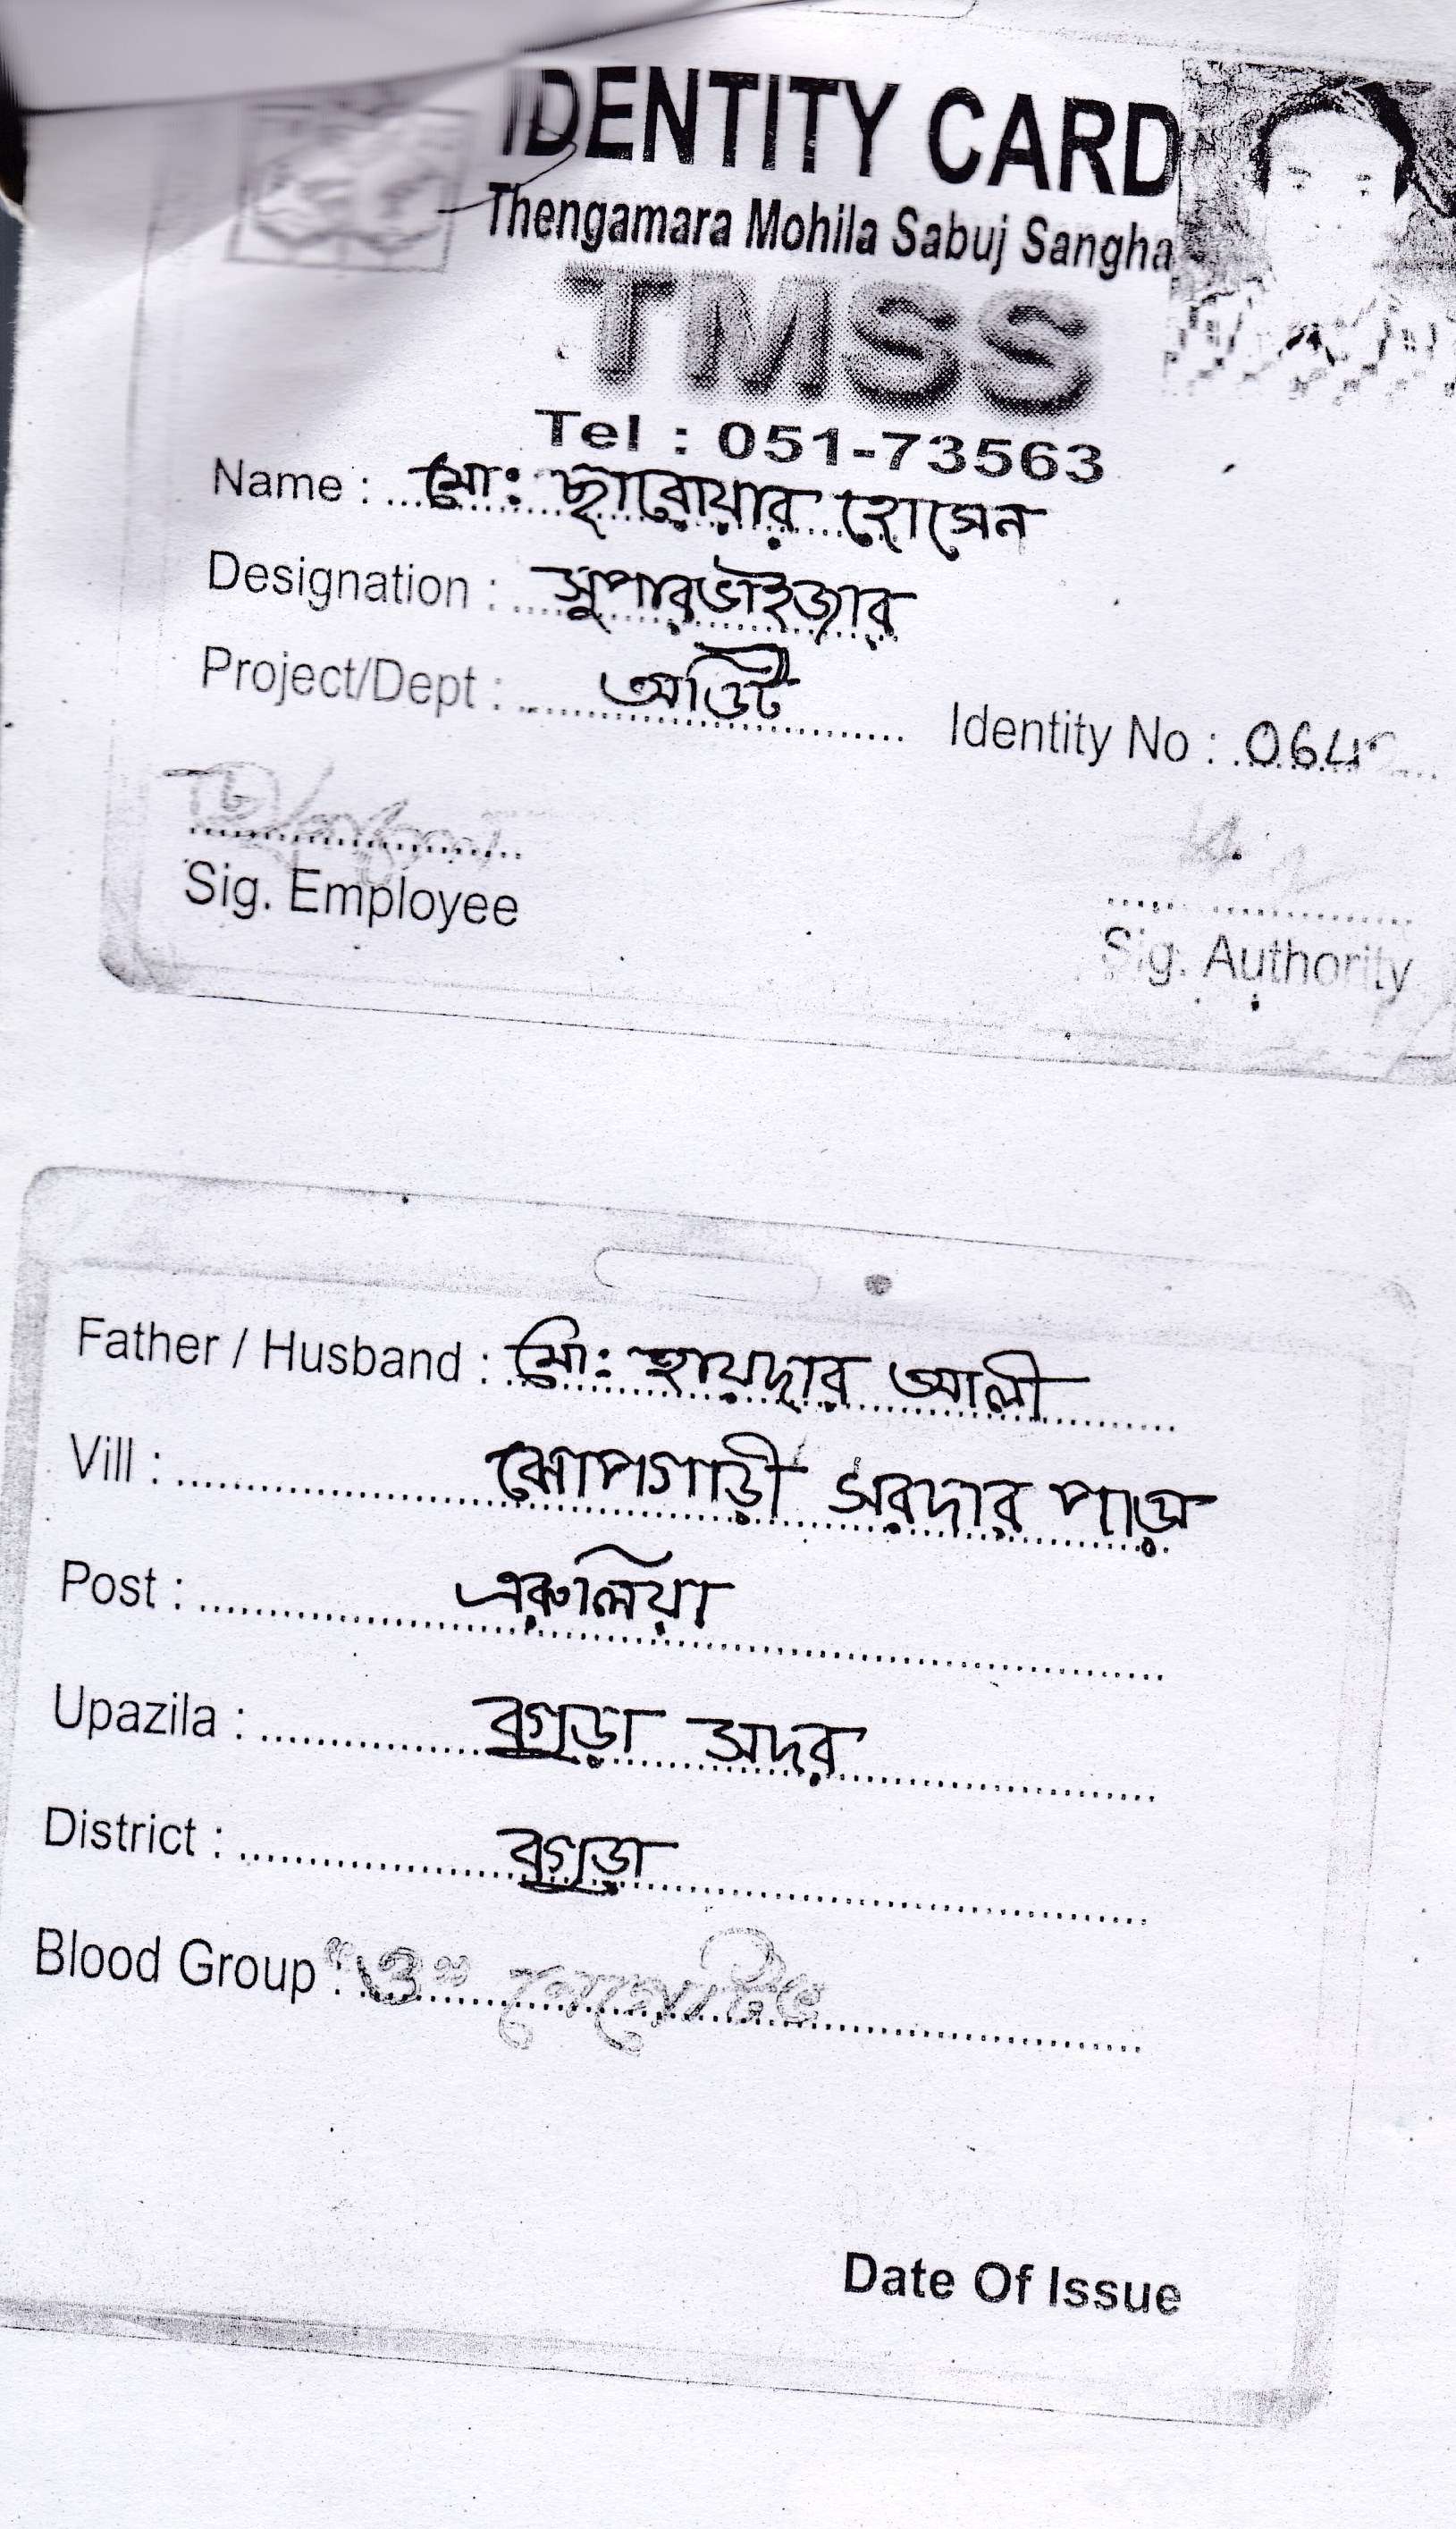 IDENTITY CARD
Thengamara Mohila Sabuj Sangha
TMSS
Tel : 051-73563
Name : মোঃ ছারোয়ার হোসেন
Designation : সুপারভাইজার
Project/Dept : অডিট
Identity No :
Sig. Employee
Sig. Authority
Father / Husband : মোঃ হায়দার আলী
Vill : ঝোপগাড়ী সরদার পাড়া
Post : এরুলিয়া
Upazila : বগুড়া সদর
District : বগুড়া
Blood Group : "ও" নেগেটিভ
Date Of Issue